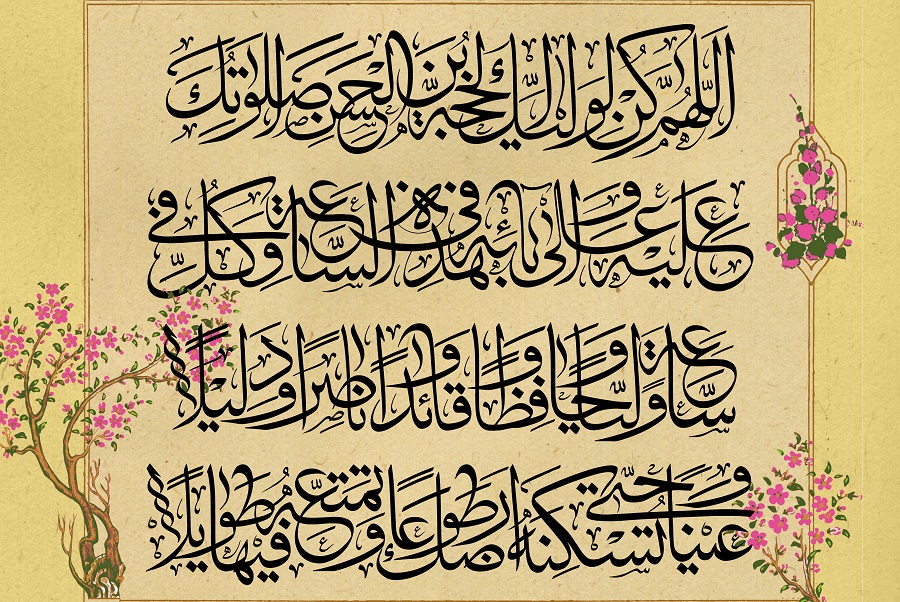 اللهم كن لوليك الحجة بن الحسن صلواتك
عليه وعلى آبائه في هذه الساعة وفي كل
ساعة وليا وحافظا وقائدا وناصرا ودليلا
وعينا حتى تسكنه أرضك طوعا وتمتعه فيها طويلا